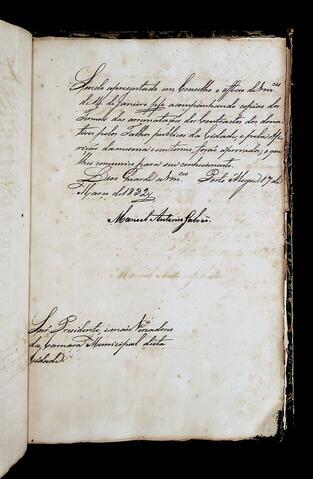 Sendo apresentado em Conselho o officio de Vm.ces
de 14 de Janeiro pp.o acompanhando copias dos
Termos das arrematações do Contracto do dona-
tivo pelos Talhos publicos da Cidade, e pela
da mesma forão aprovadas, o que
lhes communico para seu conhecimento.
Deos Guarde a Vm.ces Porto Alegre 17 de
Março de 1832
Manoel Antonio Galvão
Snr. Presidente, e mais Vereadores
da Camara Municipal desta
Cidade.